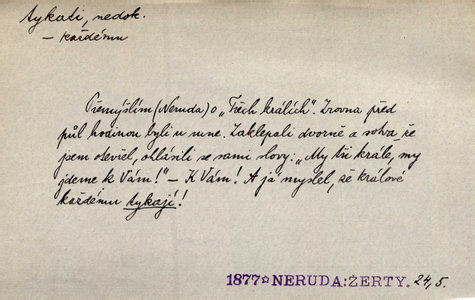 tykati, nedok.
– každému
Přemýšlím (Neruda) o „Třech králích“. Zrovna před
půl hodinou byli u mne. Zaklepali dvorně a sotva že
jsem otevřel, ohlásili se sami slovy: „My tři krále, my
jdeme k Vám!“ – K Vám! A já myslel, že králové
každému tykají!
1877☆NERUDA: ŽERTY. 24,5.